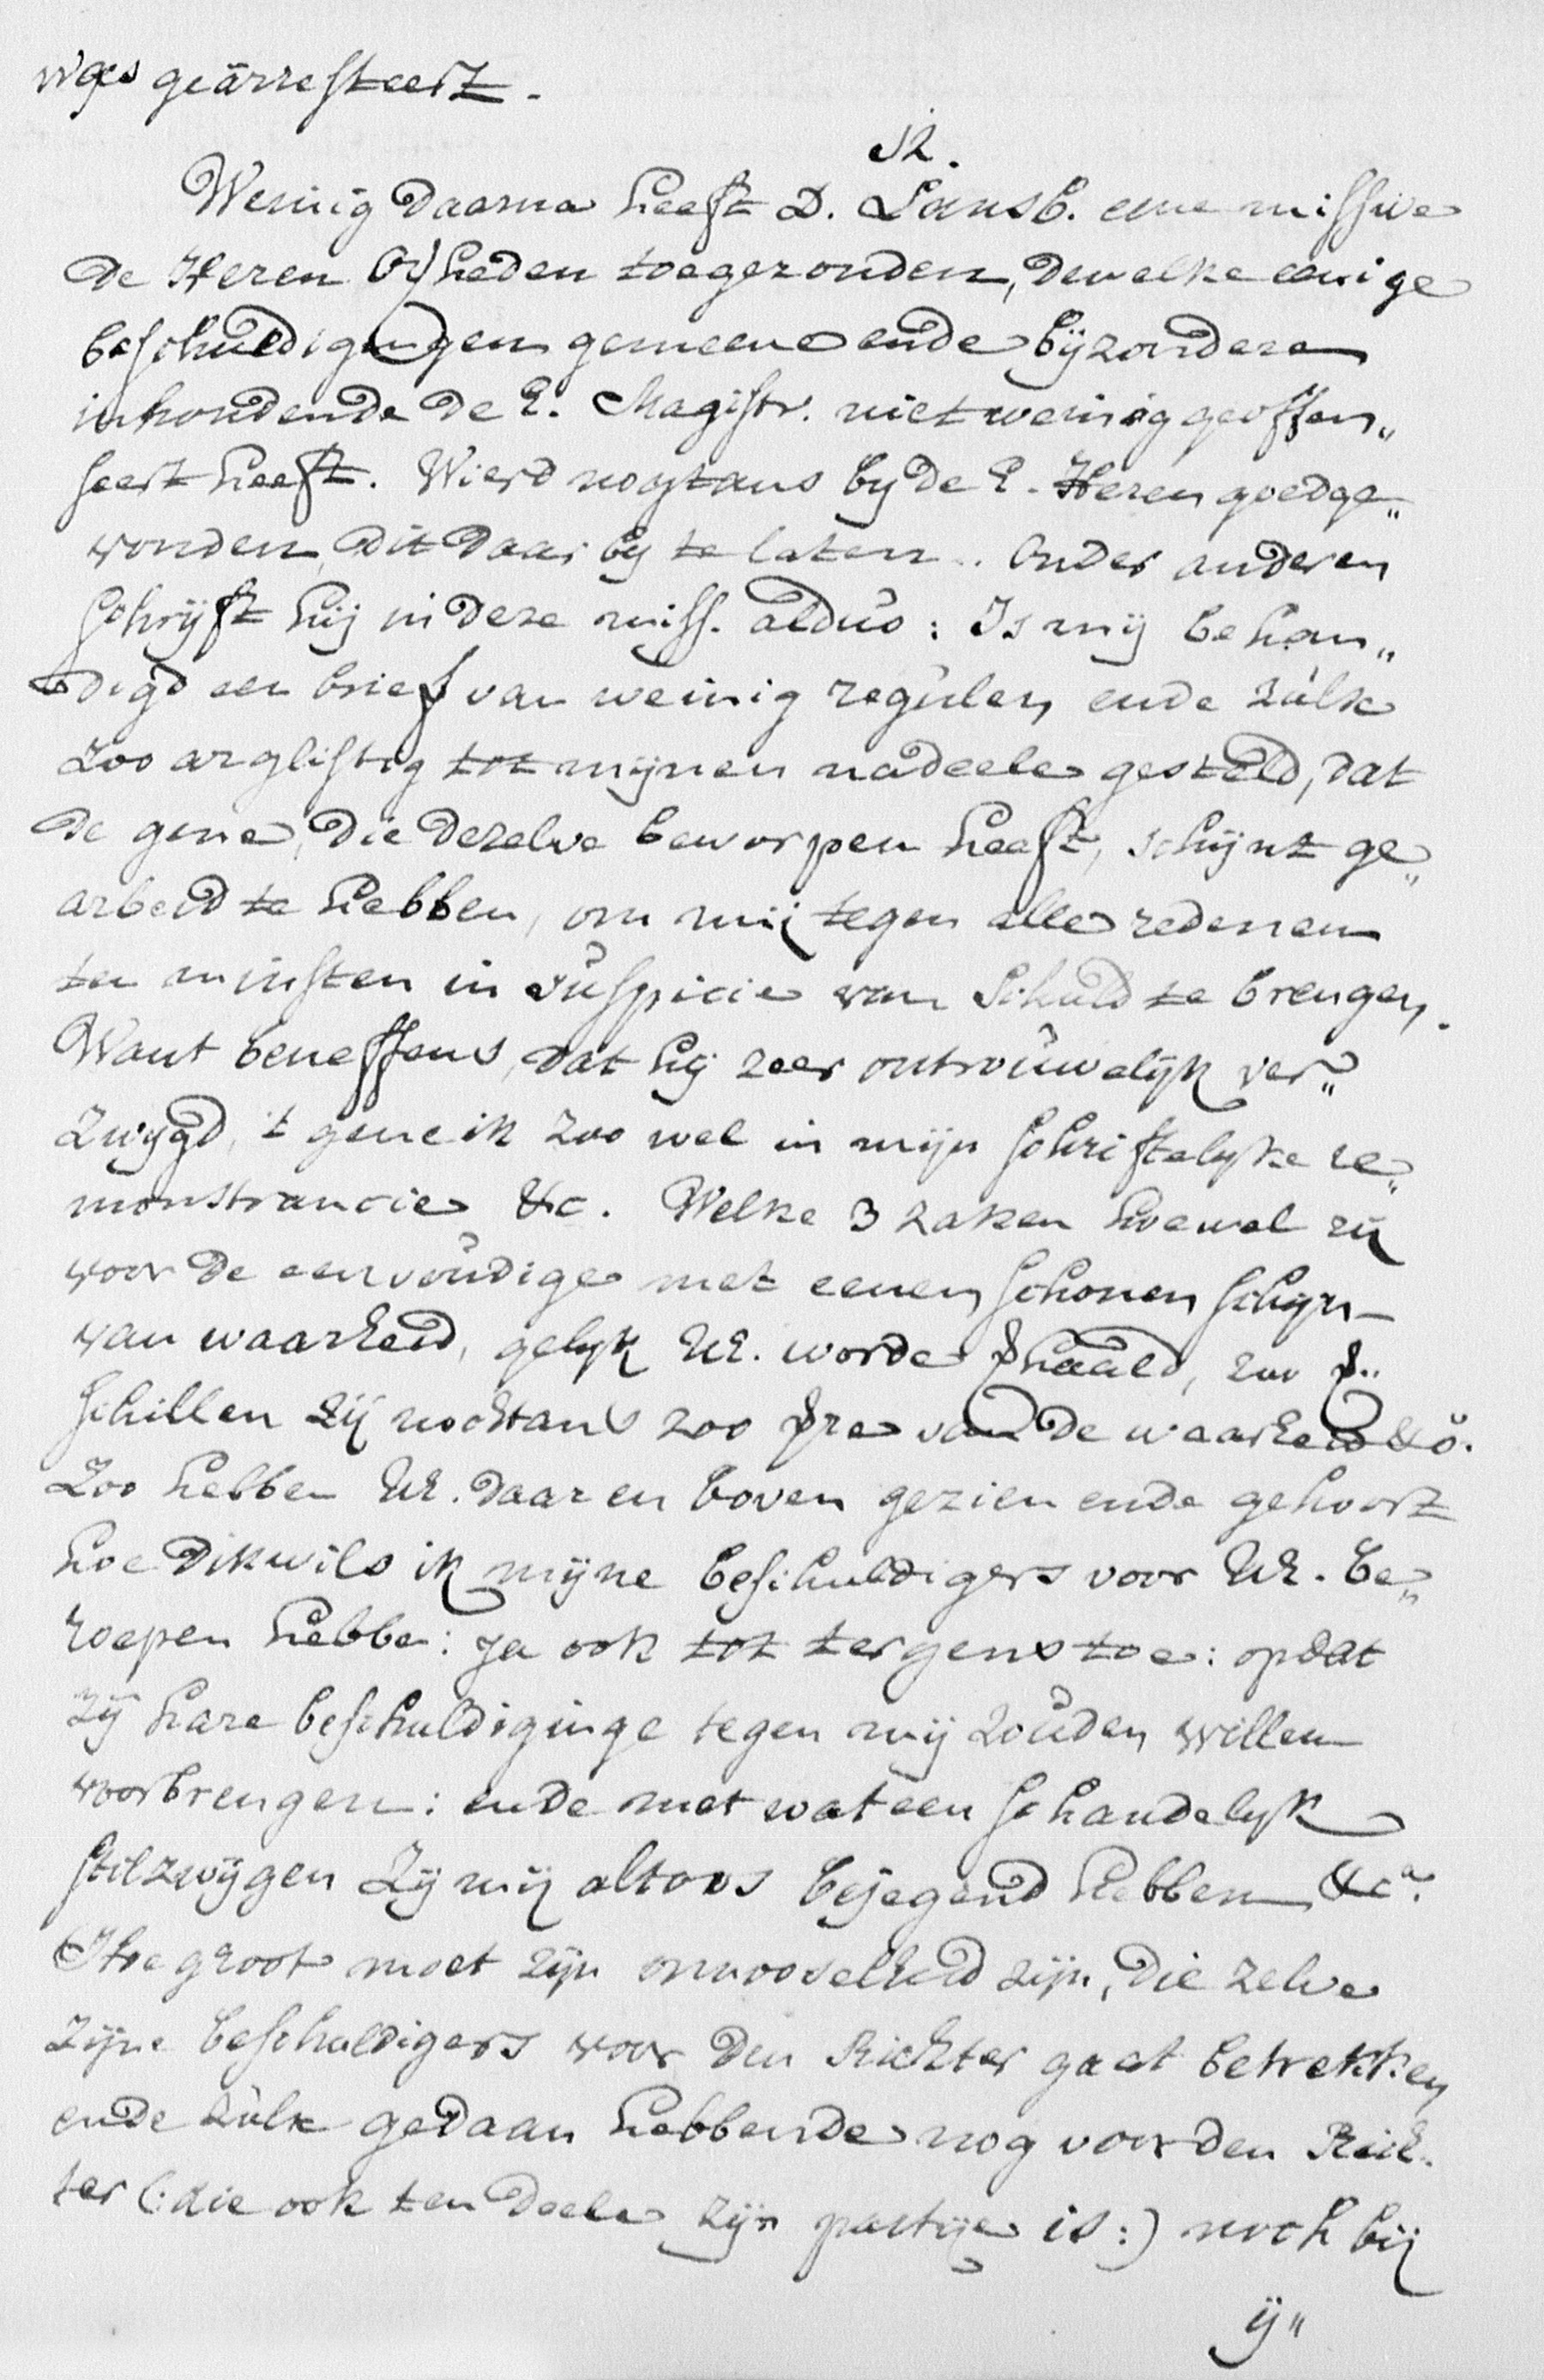 was geärresteert.
12.
Weinig daarna heeft D. Lansb. eene missive
de Heren Ovheden toegezonden, dewelke eenige
beschuldigingen gemeene ende bijzondere
inhoudende de E. Magistr. niet weinig geoffen„
seert heeft. Wierd nogtans by de E. Heren goedge„
vonden, dit daar by te laten. Onder anderen
schrijft hij in deze miss. aldus: Is mij behan„
digd een brief van weinig regulen, ende zulk
zoo arglistig tot mijnen nadeele gesteld, dat
de gene, die dezelve beworpen heeft, schijnt ge„
arbeid te hebben, om mij tegen alle redenen
ten minsten in suspicie van schuld te brengen.
Want beneffens, dat hij zeer ontrouwelijk ver„
zwijgd, 't gene ik zoo wel in mijn schriftelyke re„
monstrancie &c. Welke 3 zaken hoewel zij
voor de eenvoudige met eenen schonen schijn
van waarheid, gelyk UE. worde verhaald, zoo ver„
schillen zij nochtans zoo verre van de waarheid &c.
Zoo hebben UE. daar en boven gezien ende gehoort
hoe dikwils ik mijne beschuldigers voor UE. be„
roepen hebbe: ja ook tot tergens toe: opdat
zij hare beschuldiginge tegen mij zouden willen
voorbrengen: ende met wat een schandelyk
stilzwijgen zij mij altoos bejegend hebben &ca.
Hoe groot moet zijn onnooselheid zijn, die zelve
zijne beschuldigers voor den Richter gaat betrekken
ende zulk gedaan hebbende nog voor den Rich„
ter (: die ook ten deele zijn partije is:) noch bij
ij„